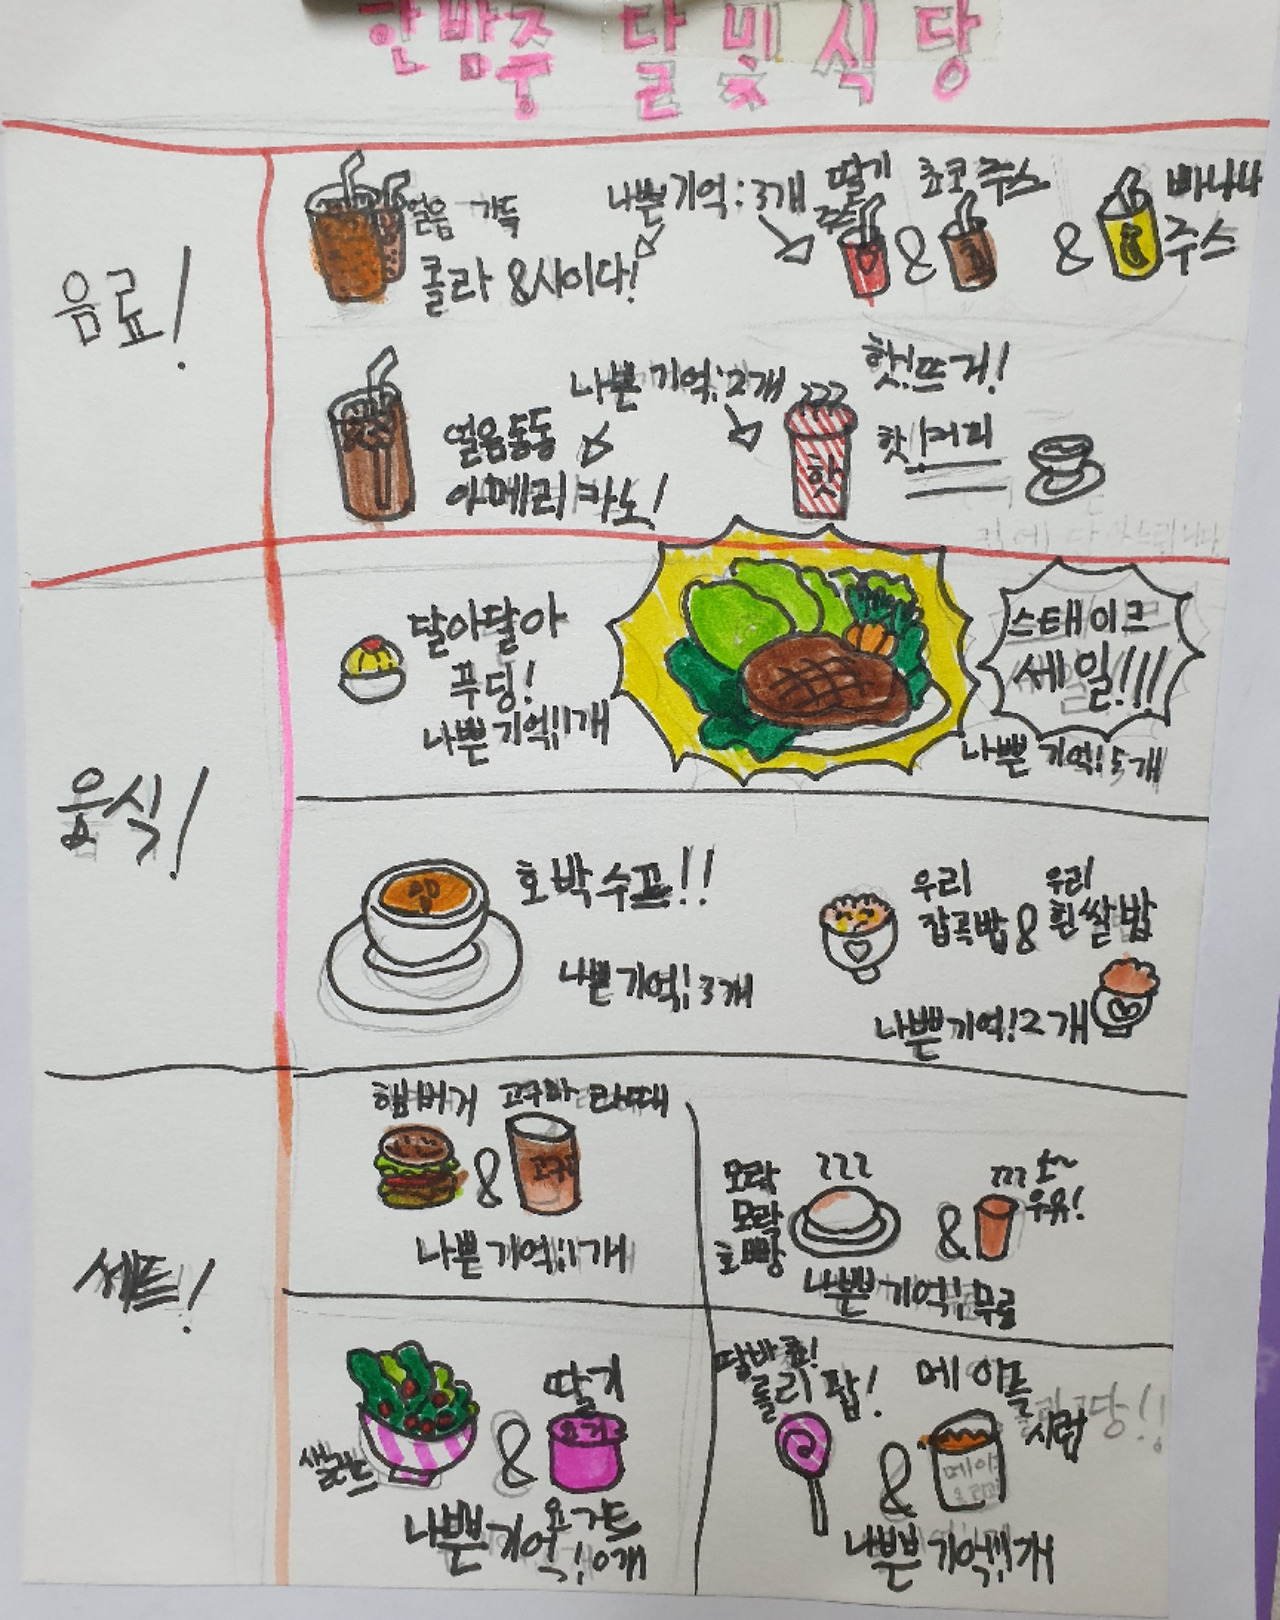 한밤중 달빛식당
음료!
얼음 가득
콜라 & 사이다!
나쁜기억:3개
딸기
주스
&
초코주스
&
바나나
주스
얼음동동
아메리카노!
나쁜 기억:2개
핫!뜨거!
핫!커피
핫
음식!
달아달아
푸딩!
나쁜 기억!1개
스태이크
세일!!!
나쁜 기억!5개
호박수프!!
나쁜 기억!3개
우리
잡곡밥
&
우리
흰쌀밥
나쁜기억!2개
쎄트!
햄버거 & 고구마 라떼
나쁜 기억!1개
모락
모락
호빵
&
우유!
나쁜 기억! 무료
샐러드
&
딸기
요거트
나쁜기억!0개
롤리팝!
&
메이플
시럽
나쁜 기억!1개